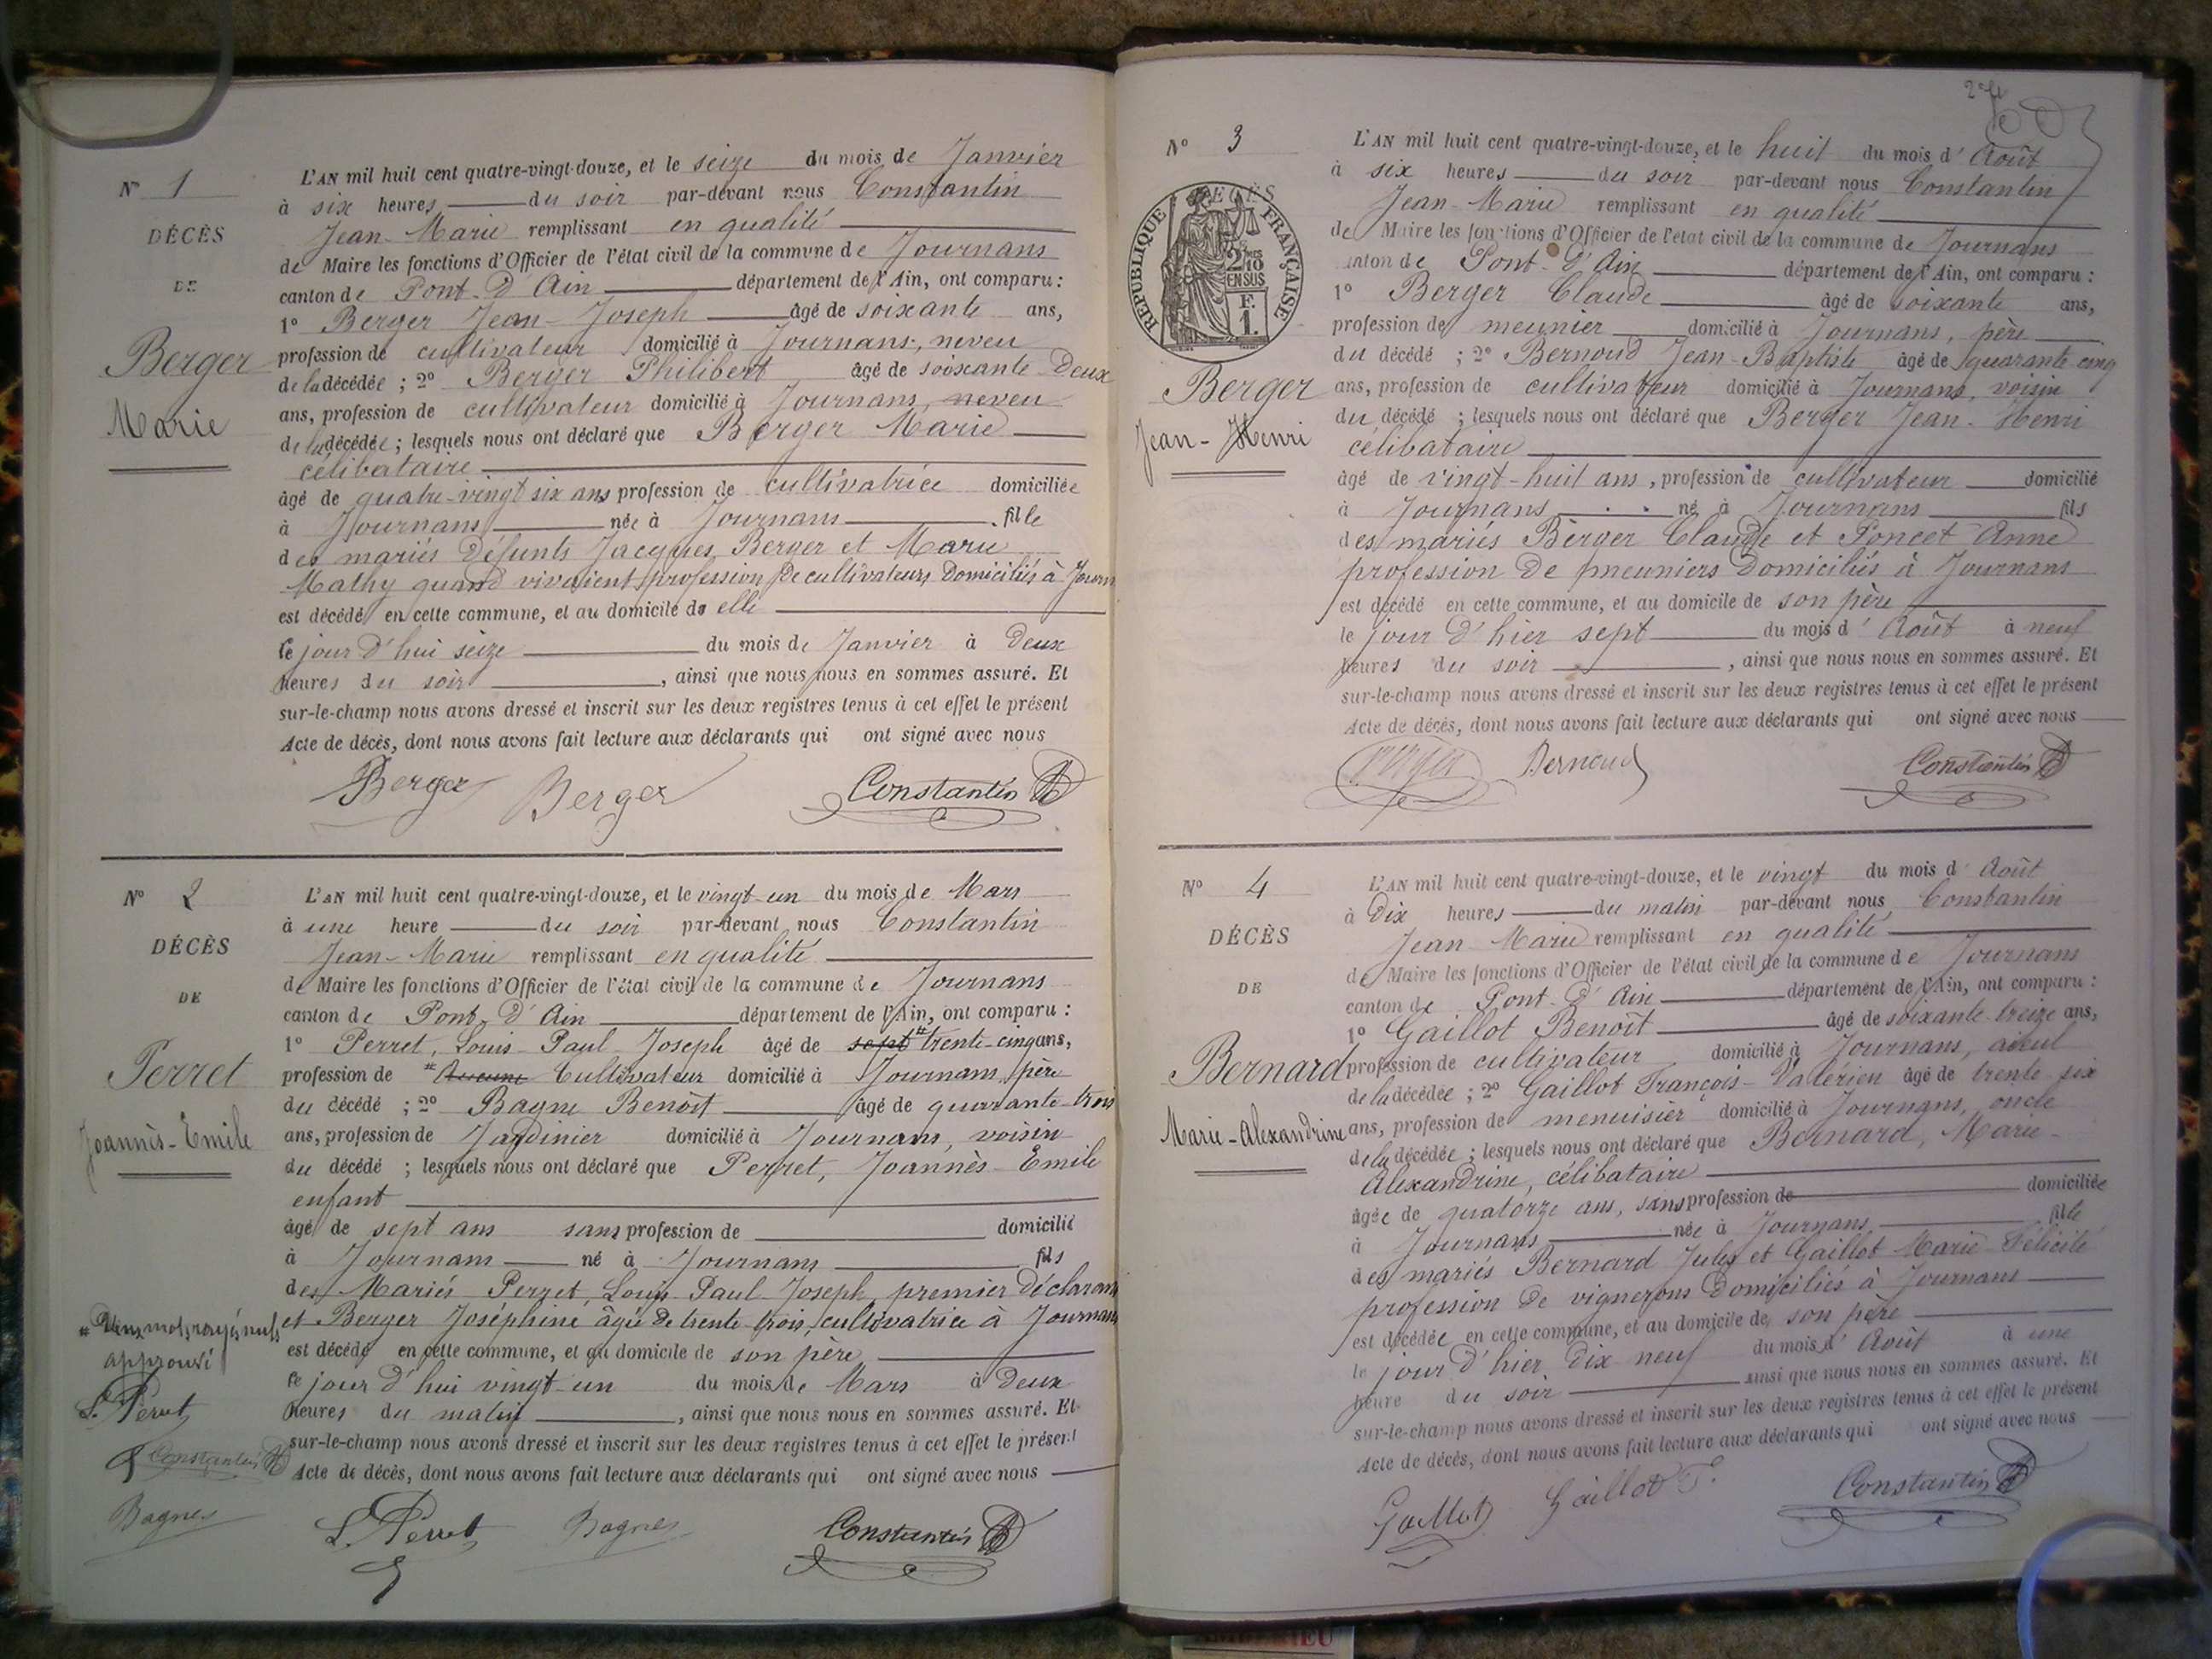 N° 1
DÉCÈS
DE
Berger
Marie
L'AN mil huit cent quatre-vingt-douze, et le seize du mois de Janvier
à six heures du soir par-devant nous Constantin
Jean-Marie remplissant en qualité
de Maire les fonctions d'Officier de l'état civil de la commune de Journans
canton de Pont-d'Ain département de l'Ain, ont comparu :
1° Berger Jean-Joseph âgé de soixante ans,
profession de cultivateur domicilié à Journans, neveu
de la décédée ; 2° Berger Philibert âgé de soixante-Deux
ans, profession de cultivateur domicilié à Journans, neveu
de la décédée ; lesquels nous ont déclaré que Berger Marie
célibataire
âgé de quatre-vingt six ans profession de cultivatrice domiciliée
à Journans née à Journans fille
des mariés Défunts Jacques Berger et Marie
Mathy quand vivaient profession de cultivateurs Domiciliés à Journ
est décédé en cette commune, et au domicile de elle
le jour d'hui seize du mois de Janvier à Deux
heures du soir, ainsi que nous nous en sommes assuré. Et
sur-le-champ nous avons dressé et inscrit sur les deux registres tenus à cet effet le présent
Acte de décès, dont nous avons fait lecture aux déclarants qui ont signé avec nous
Berger Berger Constantin
N° 2
DÉCÈS
DE
Perret
Joannès-Emile
L'AN mil huit cent quatre-vingt-douze, et le vingt-un du mois de Mars
à une heure du soir par-devant nous Constantin
Jean-Marie remplissant en qualité
de Maire les fonctions d'Officier de l'état civil de la commune de Journans
canton de Pont-d'Ain département de l'Ain, ont comparu :
1° Perret, Louis-Paul-Joseph âgé de sept # trente-cinq ans,
profession de # Aucune Cultivateur domicilié à Journans, père
du décédé ; 2° Bagne Benoît âgé de quarante-trois
ans, profession de Jardinier domicilié à Journans, voisin
du décédé ; lesquels nous ont déclaré que Perret, Joannès-Emile
enfant
âgé de sept ans sans profession de domicilié
à Journans né à Journans fils
des Mariés Perret, Louis-Paul-Joseph, premier Déclarant
et Berger Joséphine âgée de trente-trois, cultivatrice à Journans
est décédé en cette commune, et au domicile de son père
le jour d'hui vingt-un du mois de Mars à Deux
heures du matin, ainsi que nous nous en sommes assuré. Et
sur-le-champ nous avons dressé et inscrit sur les deux registres tenus à cet effet le présent
Acte de décès, dont nous avons fait lecture aux déclarants qui ont signé avec nous
# Deux mots rayés nuls
approuvé
L. Perret
Constantin
Bagne
L. Perret Bagne Constantin
N° 3
RÉPUBLIQUE FRANÇAISE
2 10MES
EN SUS
F.
1.
Berger
Jean-Henri
L'AN mil huit cent quatre-vingt-douze, et le huit du mois d'Août
à six heures du soir par-devant nous Constantin
Jean-Marie remplissant en qualité
de Maire les fonctions d'Officier de l'état civil de la commune de Journans
canton de Pont-d'Ain département de l'Ain, ont comparu :
1° Berger Claude âgé de soixante ans,
profession de meunier domicilié à Journans, père
du décédé ; 2° Bernoud Jean-Baptiste âgé de quarante-cinq
ans, profession de cultivateur domicilié à Journans, voisin
du décédé ; lesquels nous ont déclaré que Berger Jean-Henri
célibataire
âgé de vingt-huit ans, profession de cultivateur domicilié
à Journans né à Journans fils
des mariés Berger Claude et Poncet Anne
profession de meuniers Domiciliés à Journans
est décédé en cette commune, et au domicile de son père
le jour d'hier sept du mois d'Août à neuf
heures du soir, ainsi que nous nous en sommes assuré. Et
sur-le-champ nous avons dressé et inscrit sur les deux registres tenus à cet effet le présent
Acte de décès, dont nous avons fait lecture aux déclarants qui ont signé avec nous
Berger Bernoud Constantin
N° 4
DÉCÈS
DE
Bernard
Marie-Alexandrine
L'AN mil huit cent quatre-vingt-douze, et le vingt du mois d'Août
à Dix heures du matin par-devant nous Constantin
Jean-Marie remplissant en qualité
de Maire les fonctions d'Officier de l'état civil de la commune de Journans
canton de Pont-d'Ain département de l'Ain, ont comparu :
1° Gaillot Benoît âgé de soixante-treize ans,
profession de cultivateur domicilié à Journans, aïeul
de la décédée ; 2° Gaillot François-Valérien âgé de trente-six
ans, profession de menuisier domicilié à Journans, oncle
de la décédée ; lesquels nous ont déclaré que Bernard, Marie-
Alexandrine, célibataire
âgée de quatorze ans, sans profession de domiciliée
à Journans née à Journans fille
des mariés Bernard Jules et Gaillot Marie-Félicité
profession de vignerons Domiciliés à Journans
est décédée en cette commune, et au domicile de son père
le jour d'hier Dix neuf du mois d'Août à une
heure du soir ainsi que nous nous en sommes assuré. Et
sur-le-champ nous avons dressé et inscrit sur les deux registres tenus à cet effet le présent
Acte de décès, dont nous avons fait lecture aux déclarants qui ont signé avec nous
Gaillot Gaillot F. Constantin